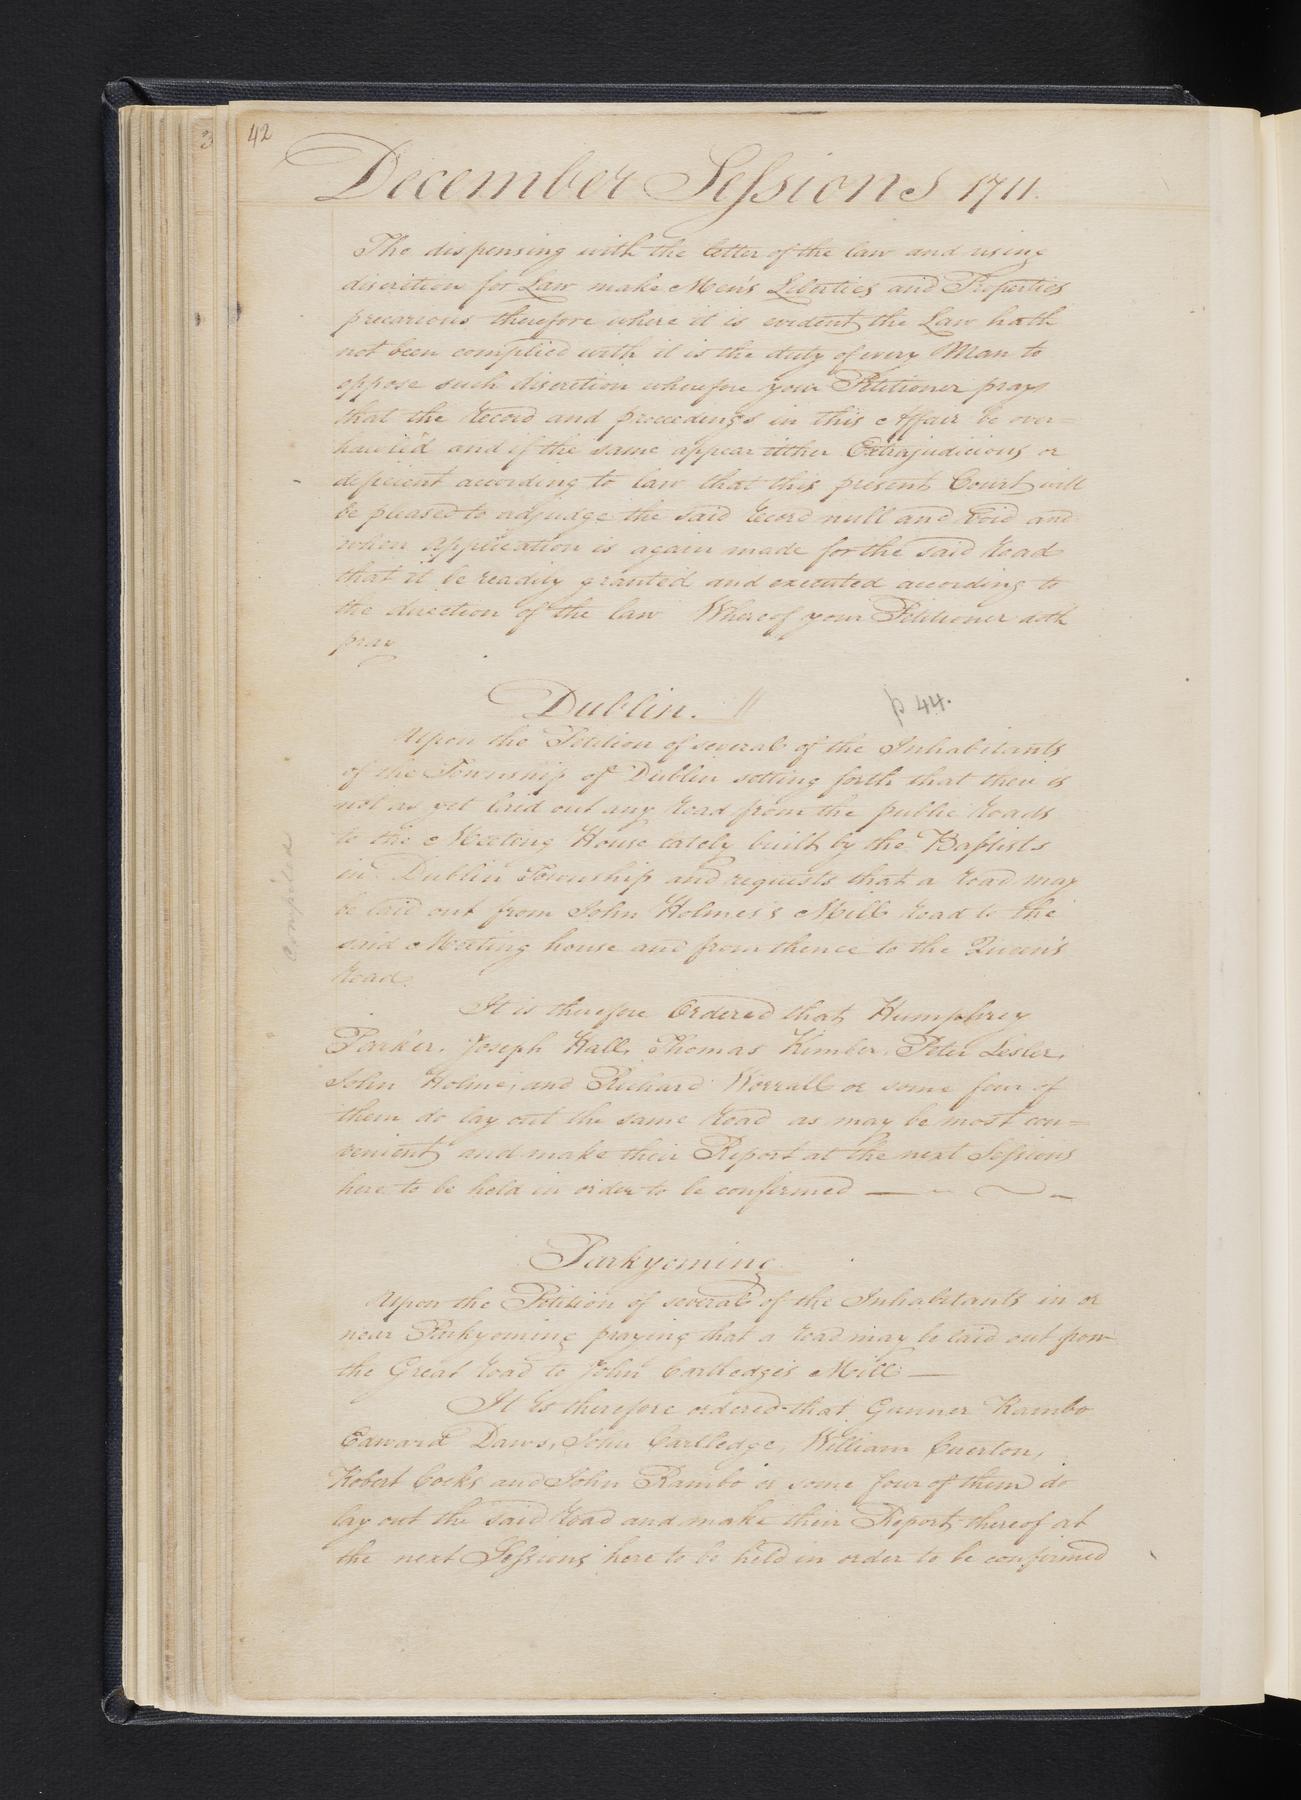 42
December Sessions 1711.
The dispensing with the letter of the law and using
discretion for Law make Men's Liberties and Properties
precarious therefore where it is evident the Law hath
not been complied with it is the duty of every Man to
oppose such discretion wherefore your Petitioner prays
that the Record and proceedings in this Affair be over=
hawled and if the same appear either Extrajudicious or
deficient according to law that this present Court will
be pleased to adjudge the said Record null and Void and
when Application is again made for the said Road
that it be readily granted and executed according to
the direction of the law Whereof your Petitioner doth
pray
Dublin. //
p 44.
Upon the Petition of several of the Inhabitants
of the Township of Dublin setting forth that there is
not as yet laid out any Road from the public Roads
to the Meeting House lately built by the Baptists
in Dublin Township and requests that a Road may
be laid out from John Holmes's Mill Road to the
said Meeting house and from thence to the Queen's
Road.
It is therefore Ordered that Humphrey
Parker, Joseph Hall, Thomas Kimber, Peter Lesler,
John Holme, and Richard Worrall or some four of
them do lay out the same Road as may be most con=
venient and make their Report at the next Sessions
here to be held in order to be confirmed
Parkyoming
Upon the Petition of several of the Inhabitants in or
near Parkyoming praying that a Road may be laid out from
the Great Road to John Cartledge's Mill —
It is therefore ordered that Gunner Rambo
Edward Daws, John Cartledge, William Cuerton,
Robert Cocks and John Rambo or some four of them do
lay out the said Road and make their Report thereof at
the next Sessions here to be held in order to be confirmed